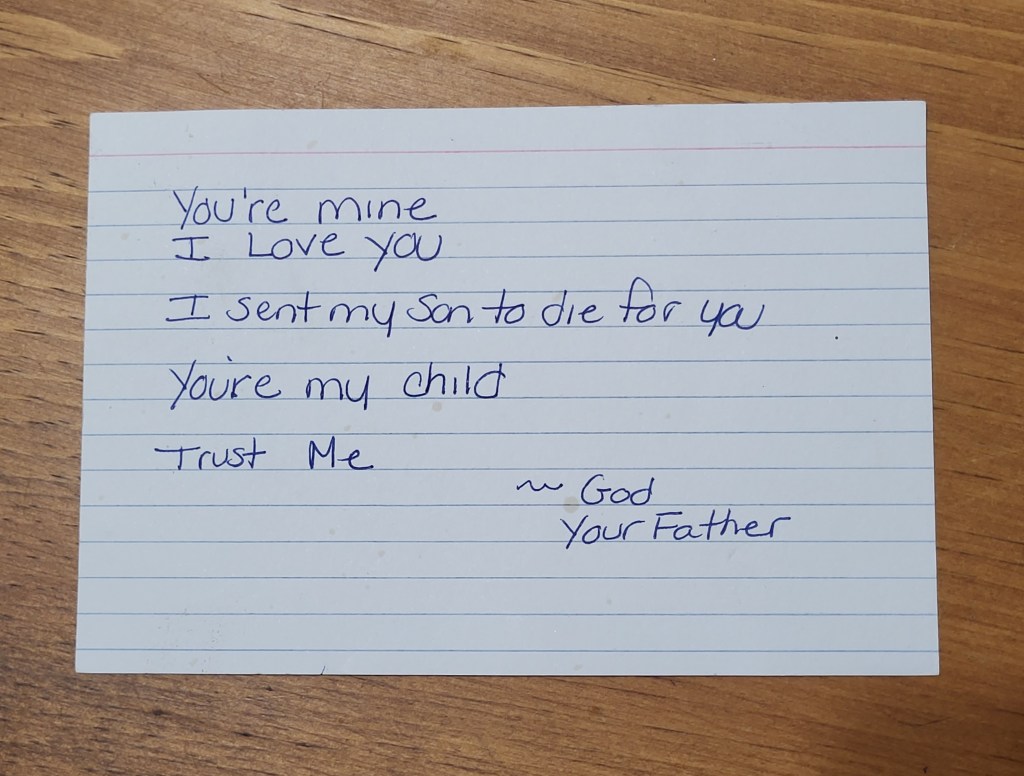 You're mine
I Love you
I sent my Son to die for you
You're my child
Trust Me
~ God
Your Father